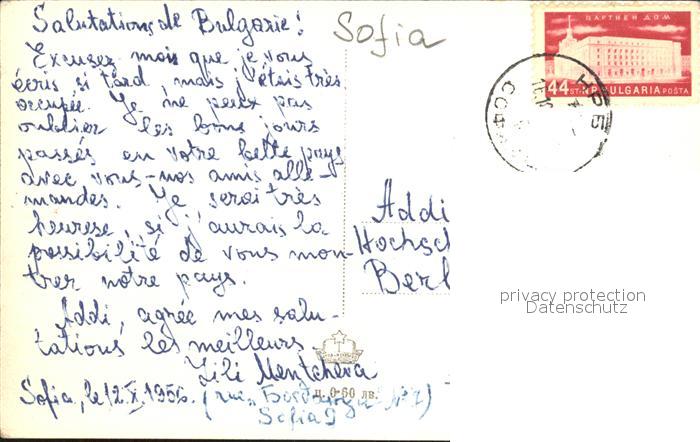 Salutations de Bulgarie!
Excusez mois que je vous
écris si tard, mais j'étais très
occupée. Je ne peux pas
oublier les bons jours
passés en votre belle pays
avec vous-nos amis alle-
mandes. Je serai très
heurese, si j'aurais la
possibilité de vous mon-
trer notre pays.
Addi, agrée mes salu-
tations les meilleurs
Lili Mentcheva
Sofia, le 12.X.1956.
(rue Nº7)
Sofia 9
ц. 0·60 лв.
Sofia
ПАРТИЕН ДОМ
44 ST. НР BULGARIA ПОЩА
НРБ
СОФ
Addi
Hochsch
Berl
privacy protection
Datenschutz